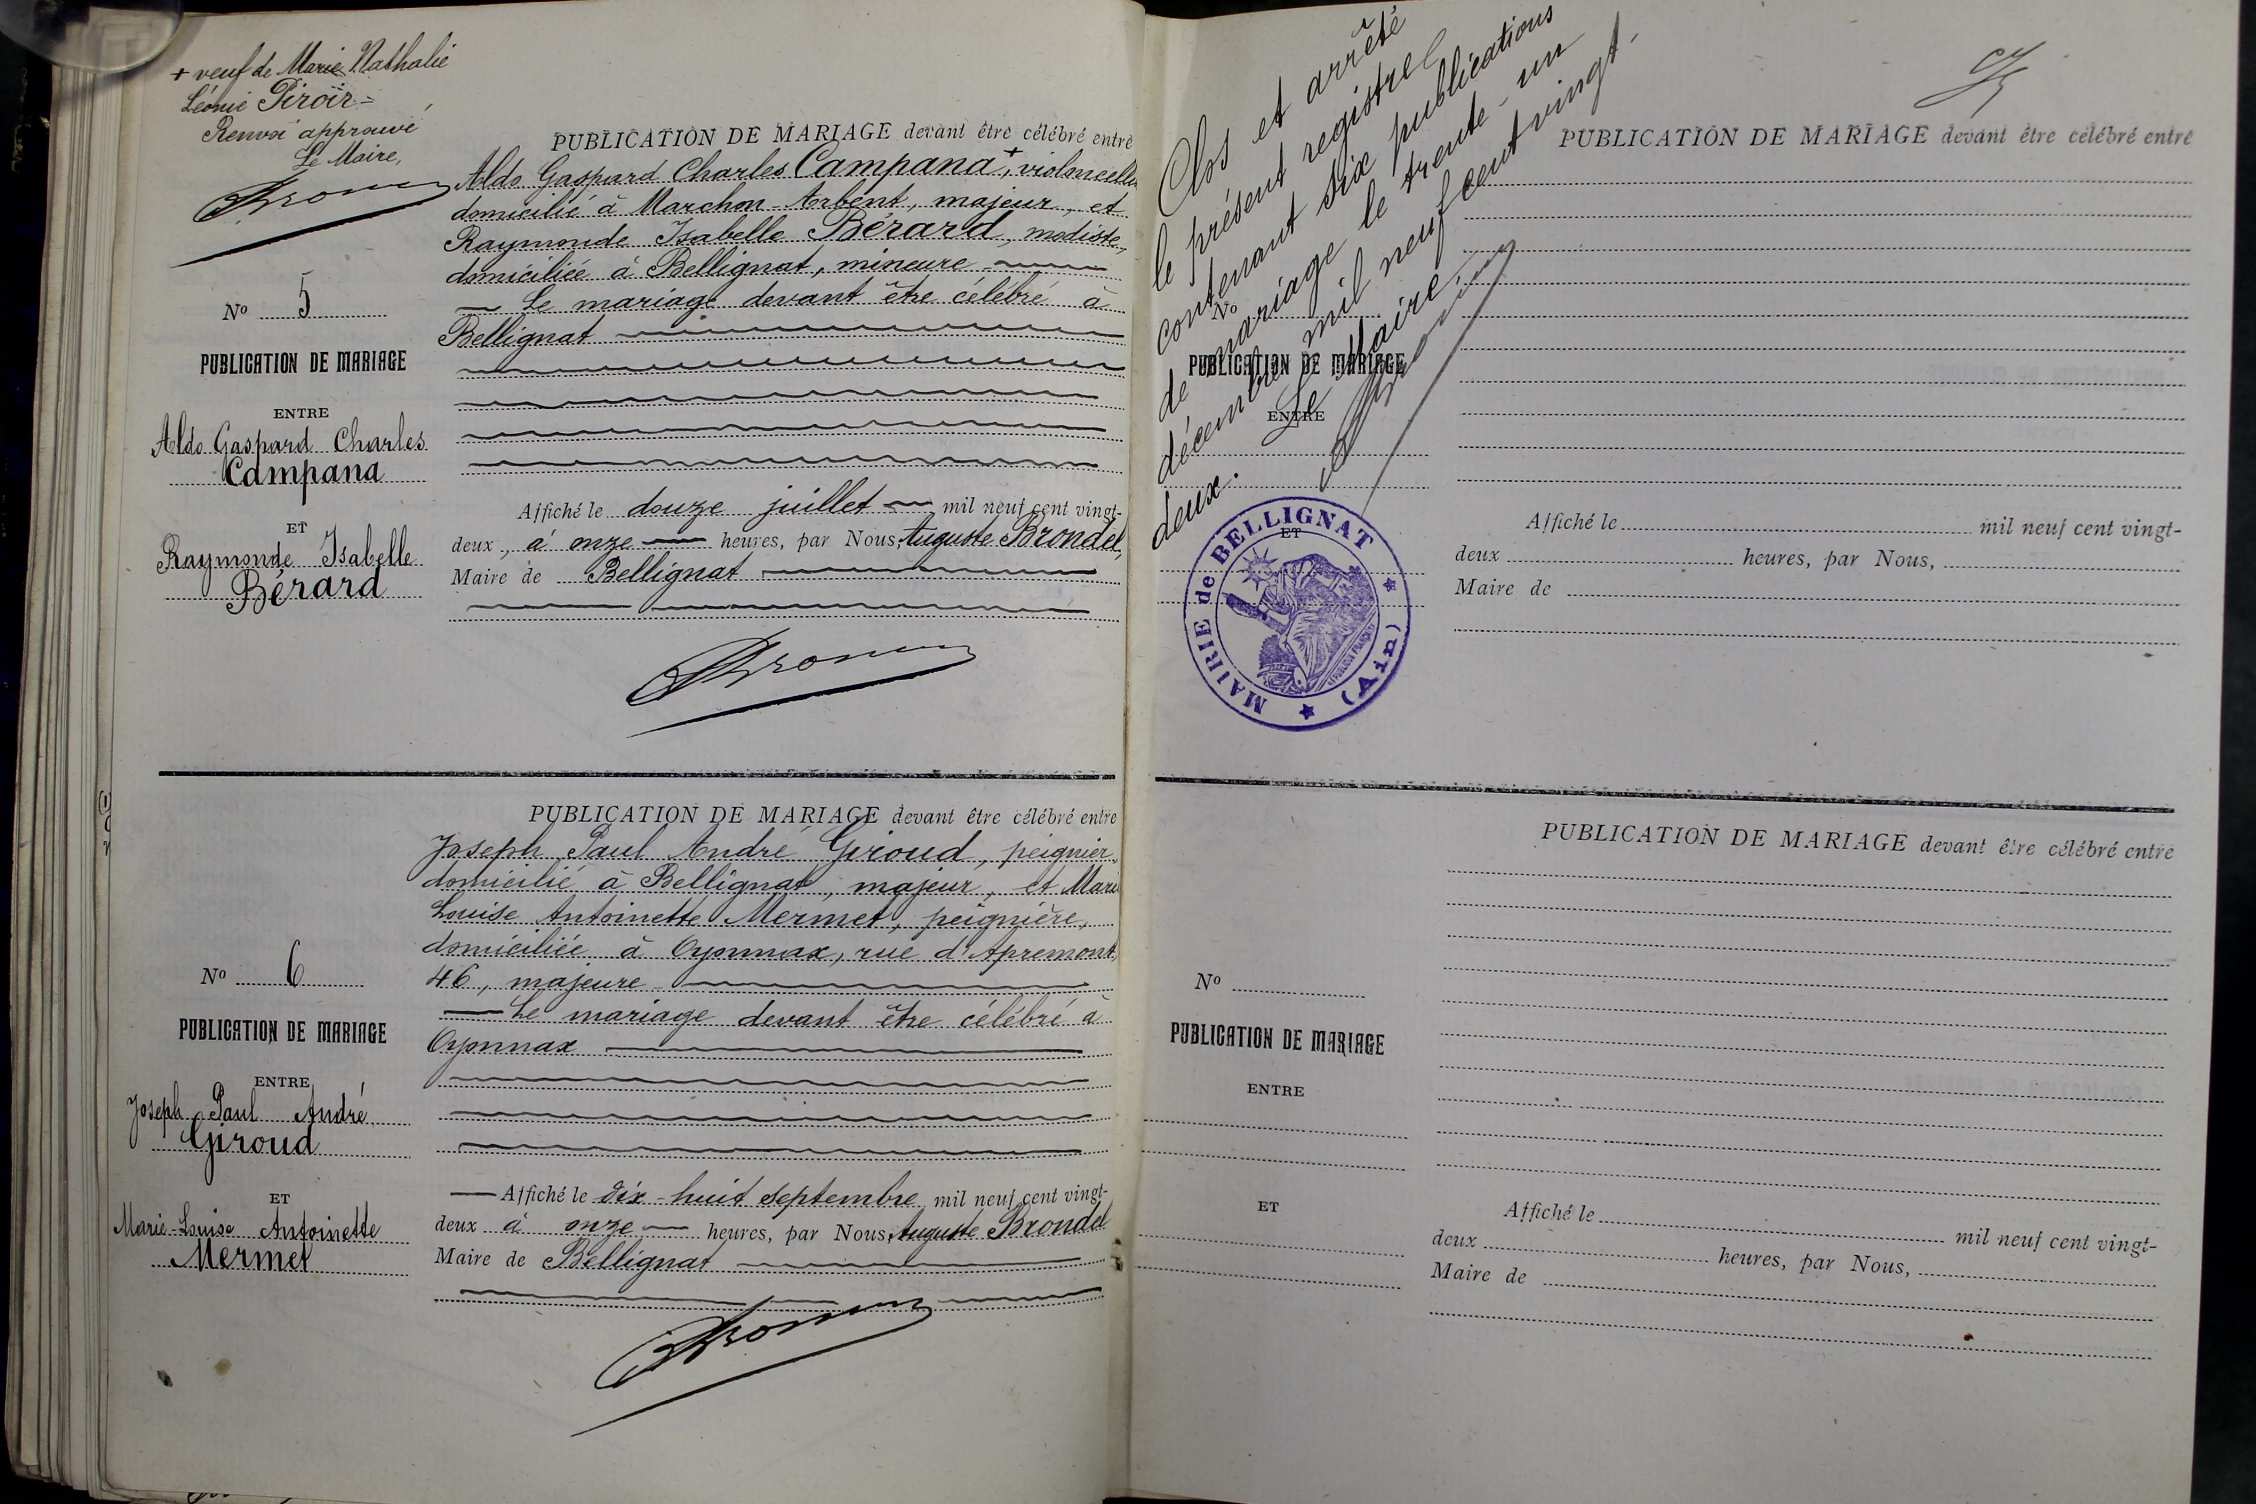 + veuf de Marie Nathalie
Léonie Piroir =
Renvoi approuvé
Le Maire,
PUBLICATION DE MARIAGE devant être célébré entre
Aldo Gaspard Charles Campana +, violoncelli
domicilié à Marchon-Arbent, majeur, et
Raymonde Isabelle Bérard, modiste,
domiciliée à Bellignat, mineure
Le mariage devant être célébré à
Bellignat
No 5
PUBLICATION DE MARIAGE
ENTRE
Aldo Gaspard Charles
Campana
ET
Raymonde Isabelle
Bérard
Affiché le douze juillet mil neuf cent vingt-
deux, à onze heures, par Nous, Auguste Brondel,
Maire de Bellignat
PUBLICATION DE MARIAGE devant être célébré entre
Joseph Paul André Giroud, peignier,
domicilié à Bellignat, majeur, et Marie
Louise Antoinette Mermet, peignière,
domiciliée à Oyonnax, rue d'Apremont,
46, majeure
Le mariage devant être célébré à
Oyonnax
No 6
PUBLICATION DE MARIAGE
ENTRE
Joseph Paul André
Giroud
ET
Marie-Louise Antoinette
Mermet
Affiché le dix-huit septembre mil neuf cent vingt-
deux à onze heures, par Nous, Auguste Brondel
Maire de Bellignat
Clos et arrêté
le présent registre
contenant six publications
de mariage le trente-un
décembre mil neuf cent vingt-
deux. Le Maire
PUBLICATION DE MARIAGE devant être célébré entre
No
PUBLICATION DE MARIAGE
ENTRE
ET
MAIRIE de BELLIGNAT
(Ain)
Affiché le mil neuf cent vingt-
deux heures, par Nous,
Maire de
PUBLICATION DE MARIAGE devant être célébré entre
No
PUBLICATION DE MARIAGE
ENTRE
ET
Affiché le mil neuf cent vingt-
deux heures, par Nous,
Maire de